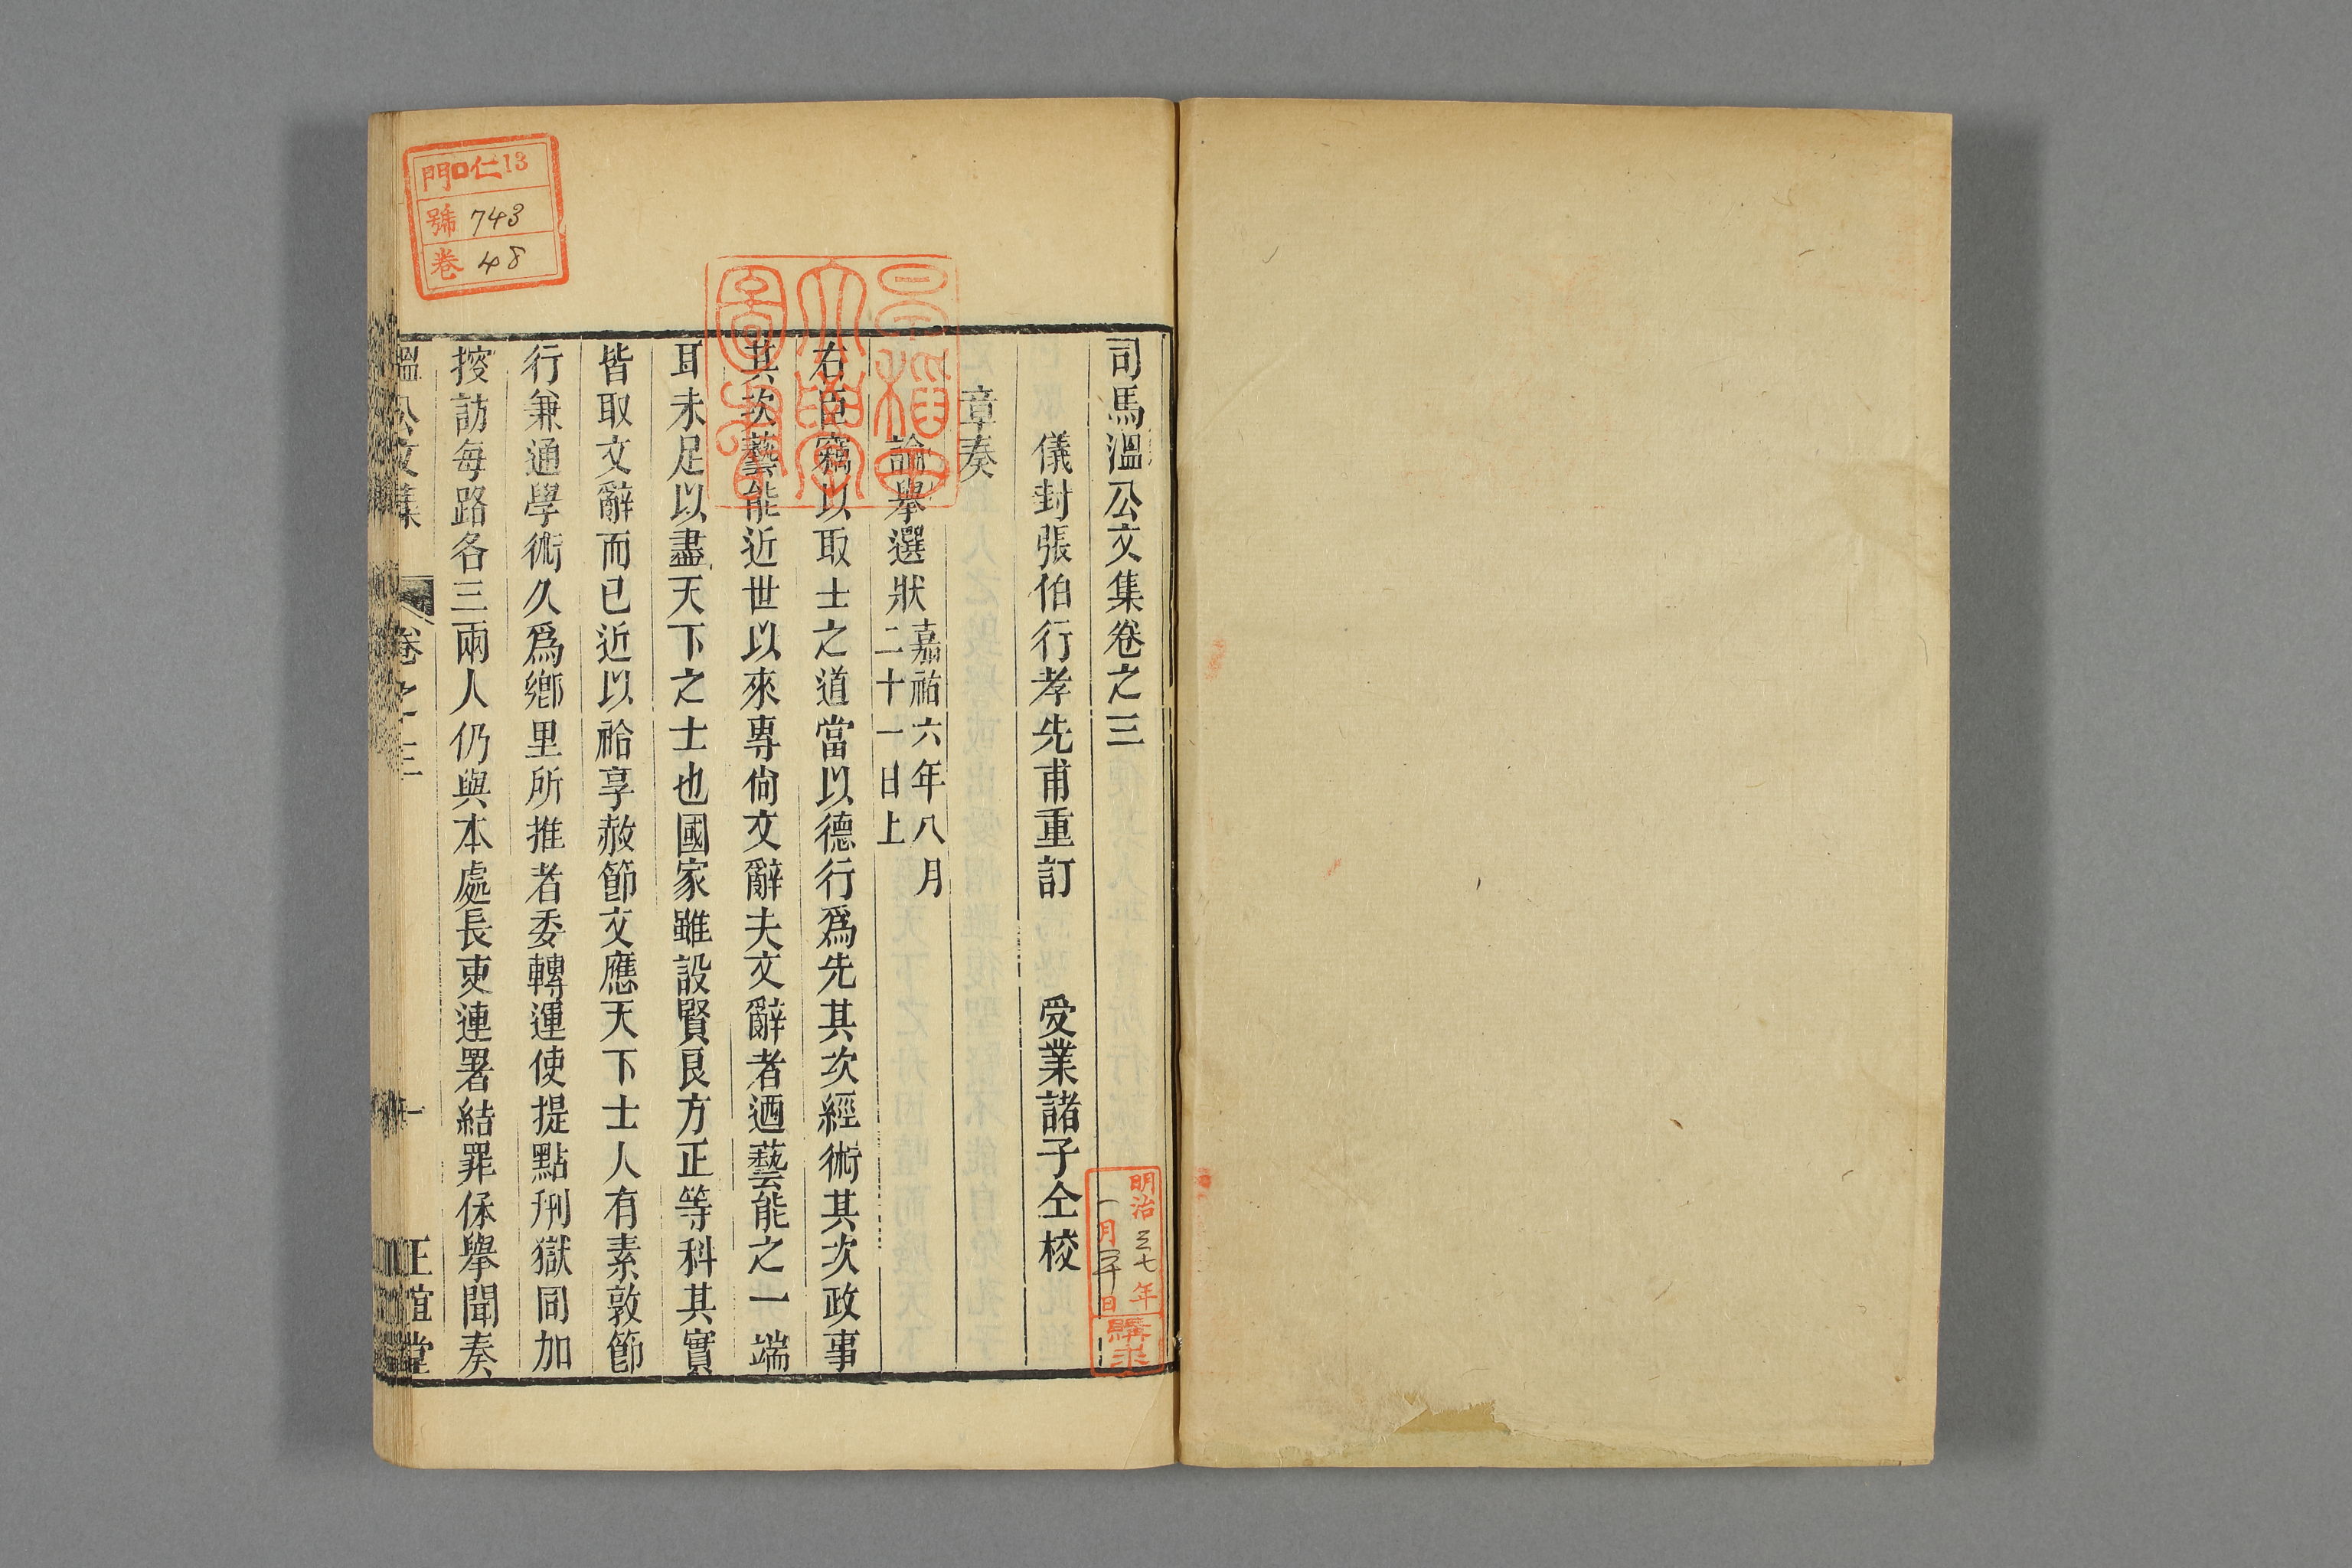 司馬溫公文集卷之三
儀封張伯行孝先甫重訂 受業諸子仝校
章奏
論舉選狀 嘉祐六年八月
二十一日上
右臣竊以取士之道當以德行爲先其次經術其次政事
其次藝能近世以來專尙文辭夫文辭者迺藝能之一端
耳未足以盡天下之士也國家雖設賢良方正等科其實
皆取文辭而已近以祫享赦節文應天下士人有素敦節
行兼通學術久爲鄉里所推者委轉運使提點刑獄同加
搜訪每路各三兩人仍與本處長吏連署結罪保舉聞奏
溫公文集 卷之三 一 正誼堂
門 口仁13
號 743
卷 48
早稻田大學圖書
明治三七年
一月 日
購求